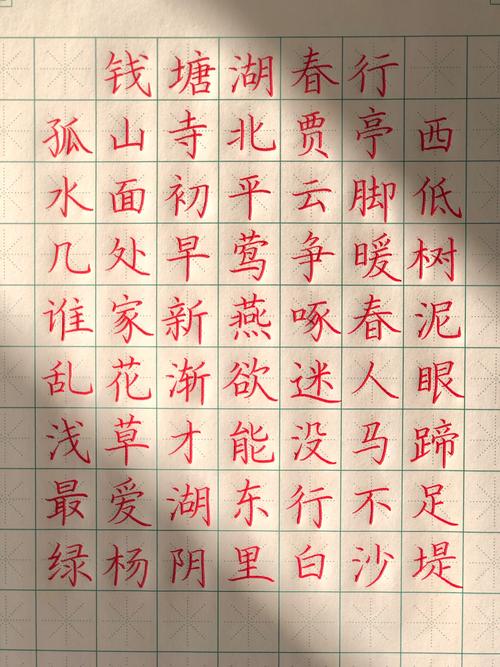 钱塘湖春行
孤山寺北贾亭西
水面初平云脚低
几处早莺争暖树
谁家新燕啄春泥
乱花渐欲迷人眼
浅草才能没马蹄
最爱湖东行不足
绿杨阴里白沙堤